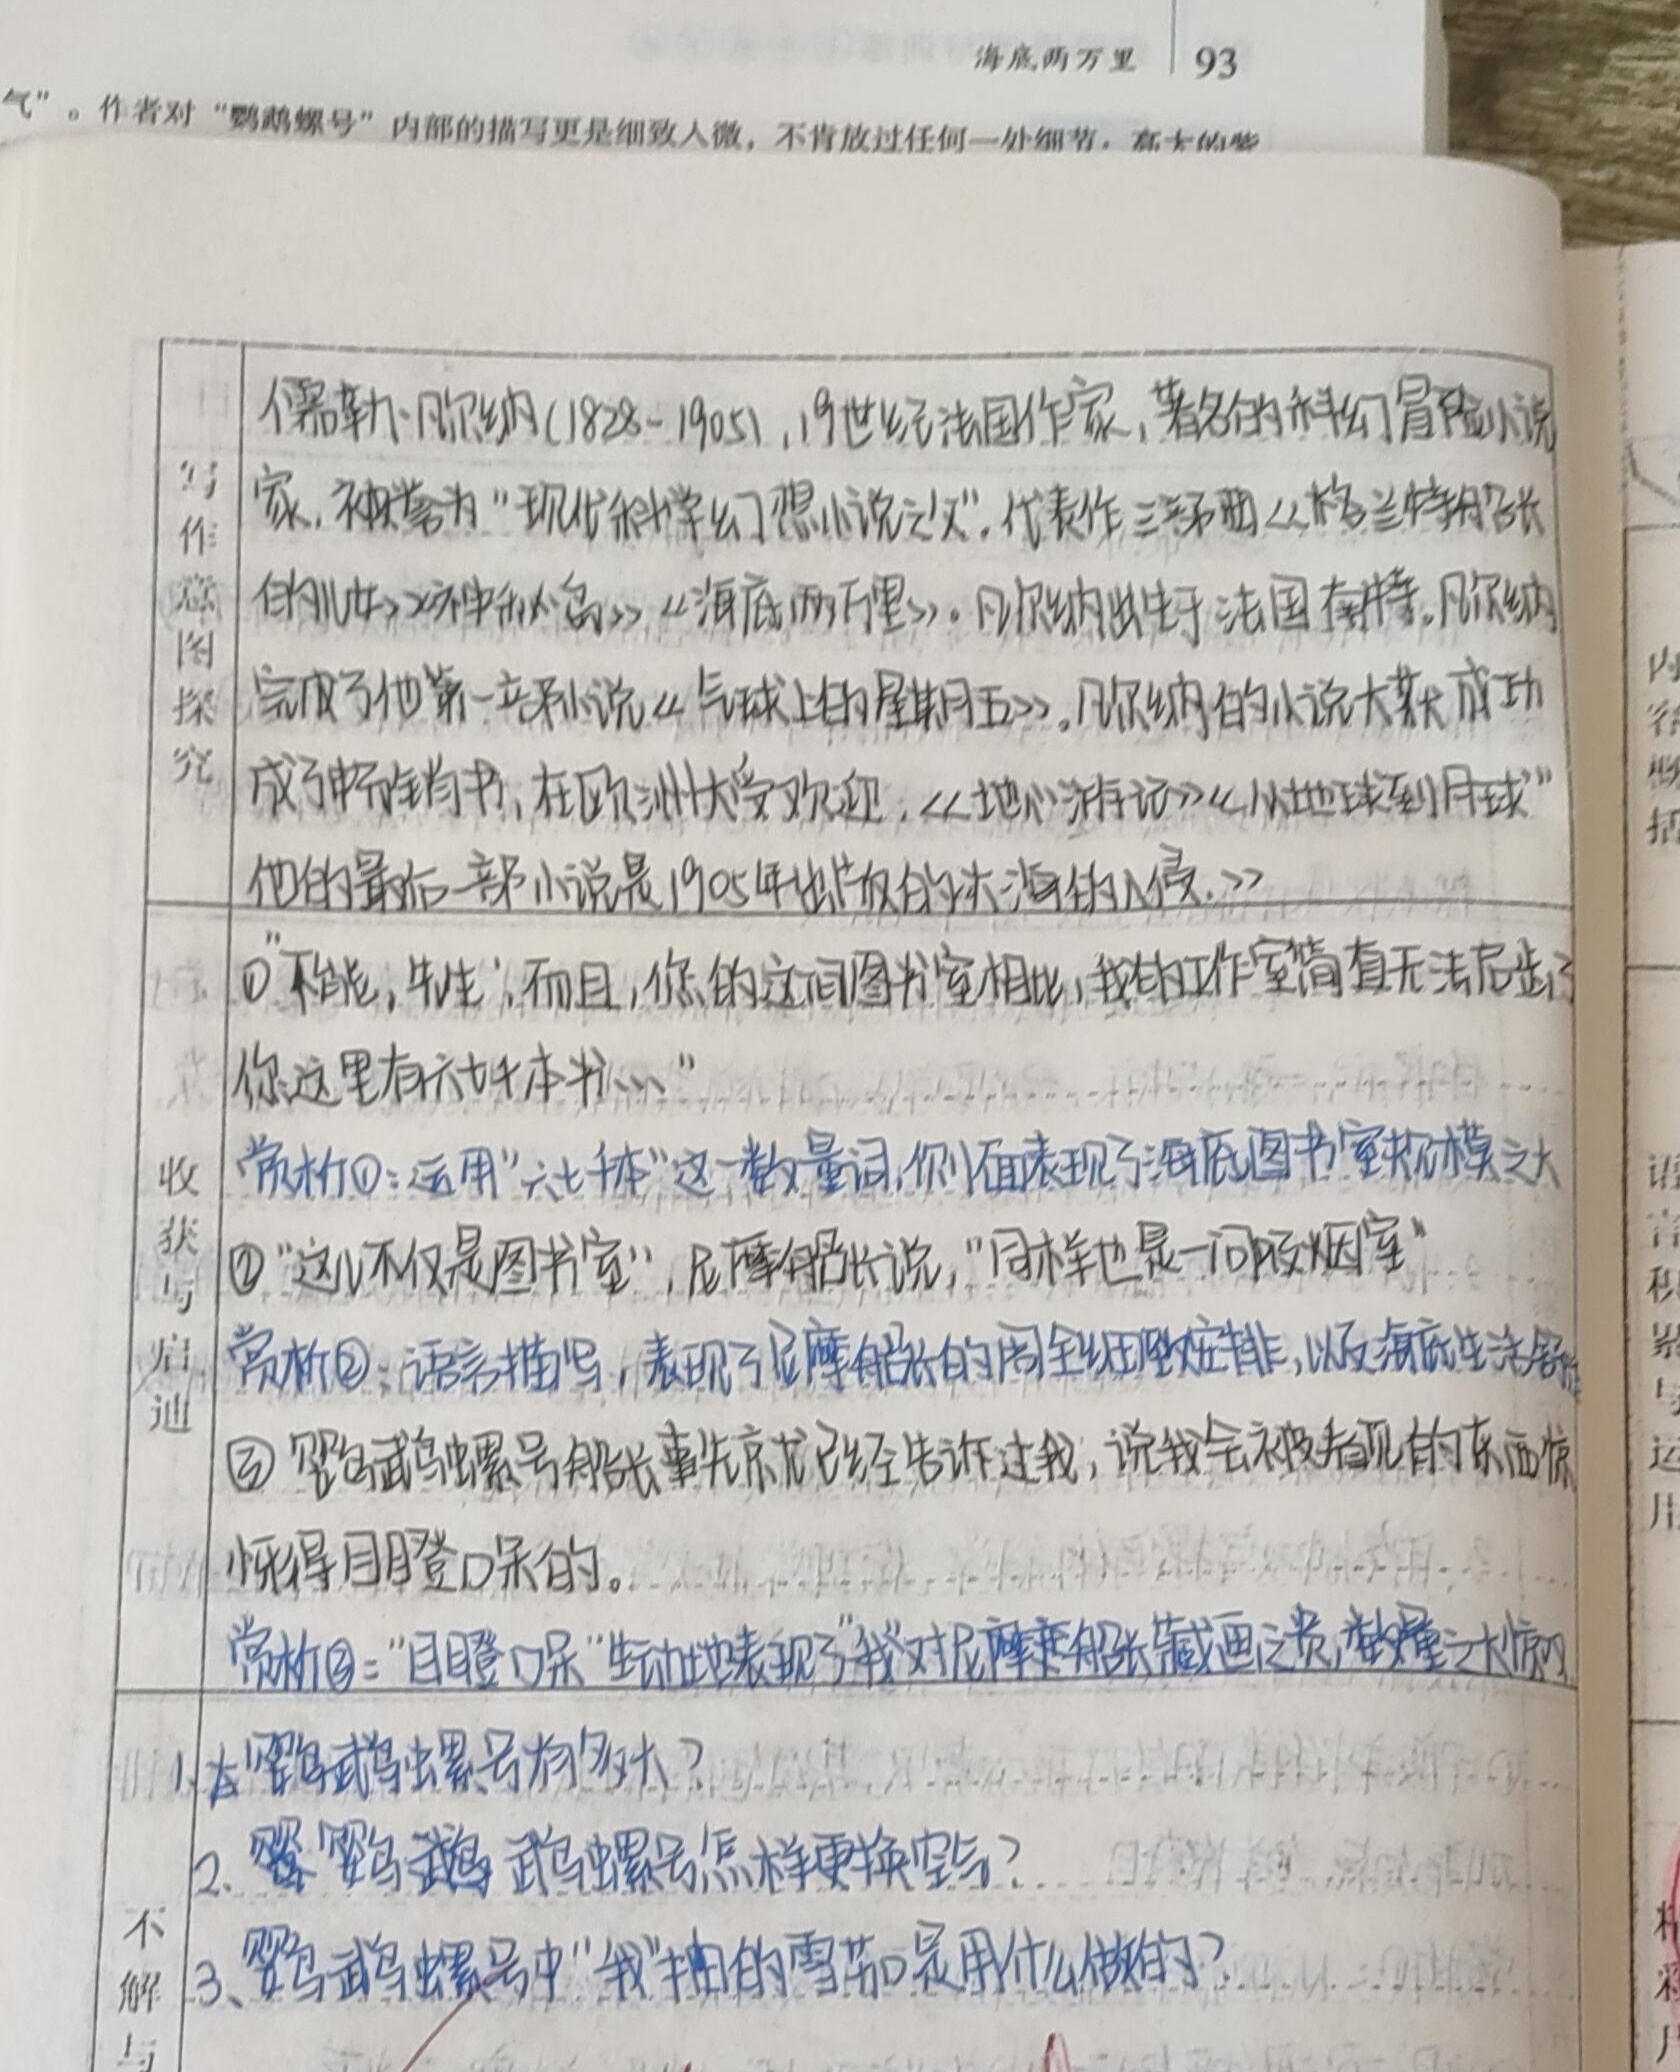 海底两万里 93
气”。作者对“鹦鹉螺号”内部的描写更是细致入微，不肯放过任何一处细节。高大的紫
写作意图探究
儒勒·凡尔纳(1828-1905)，19世纪法国作家，著名的科幻冒险小说
家，被誉为“现代科学幻想小说之父”。代表作三部曲《格兰特船长
的儿女》《神秘岛》《海底两万里》。凡尔纳出生于法国南特。凡尔纳
完成了他第一部小说《气球上的星期五》。凡尔纳的小说大获成功
成了畅销书，在欧洲大受欢迎，《地心游记》《从地球到月球”
他的最后一部小说是1905年出版的大海的入侵.》
收获与启迪
①“不能，先生”，而且，你的这间图书室相比，我的工作室简直无法启齿了
你这里有六七千本书…”
赏析①：运用“六七千本”这一数量词，侧面表现了海底图书室规模之大
②“这儿不仅是图书室”，尼摩船长说，“同样也是一间吸烟室”
赏析②：语言描写，表现了尼摩船长的周全细致安排，以及海底生活舒
③ 鹦鹉螺号船长事先就已经告诉过我，说我会被看见的东西惊
怪得目瞪口呆的。
赏析③：“目瞪口呆”生动地表现了“我”对尼摩船长藏画之贵，数量之大惊
1、鹦鹉螺号有多大？
2、鹦鹉螺号怎样更换空气？
3、鹦鹉螺号中“我”抽的雪茄是用什么做的？
不解与
内容概括
语言积累与运用